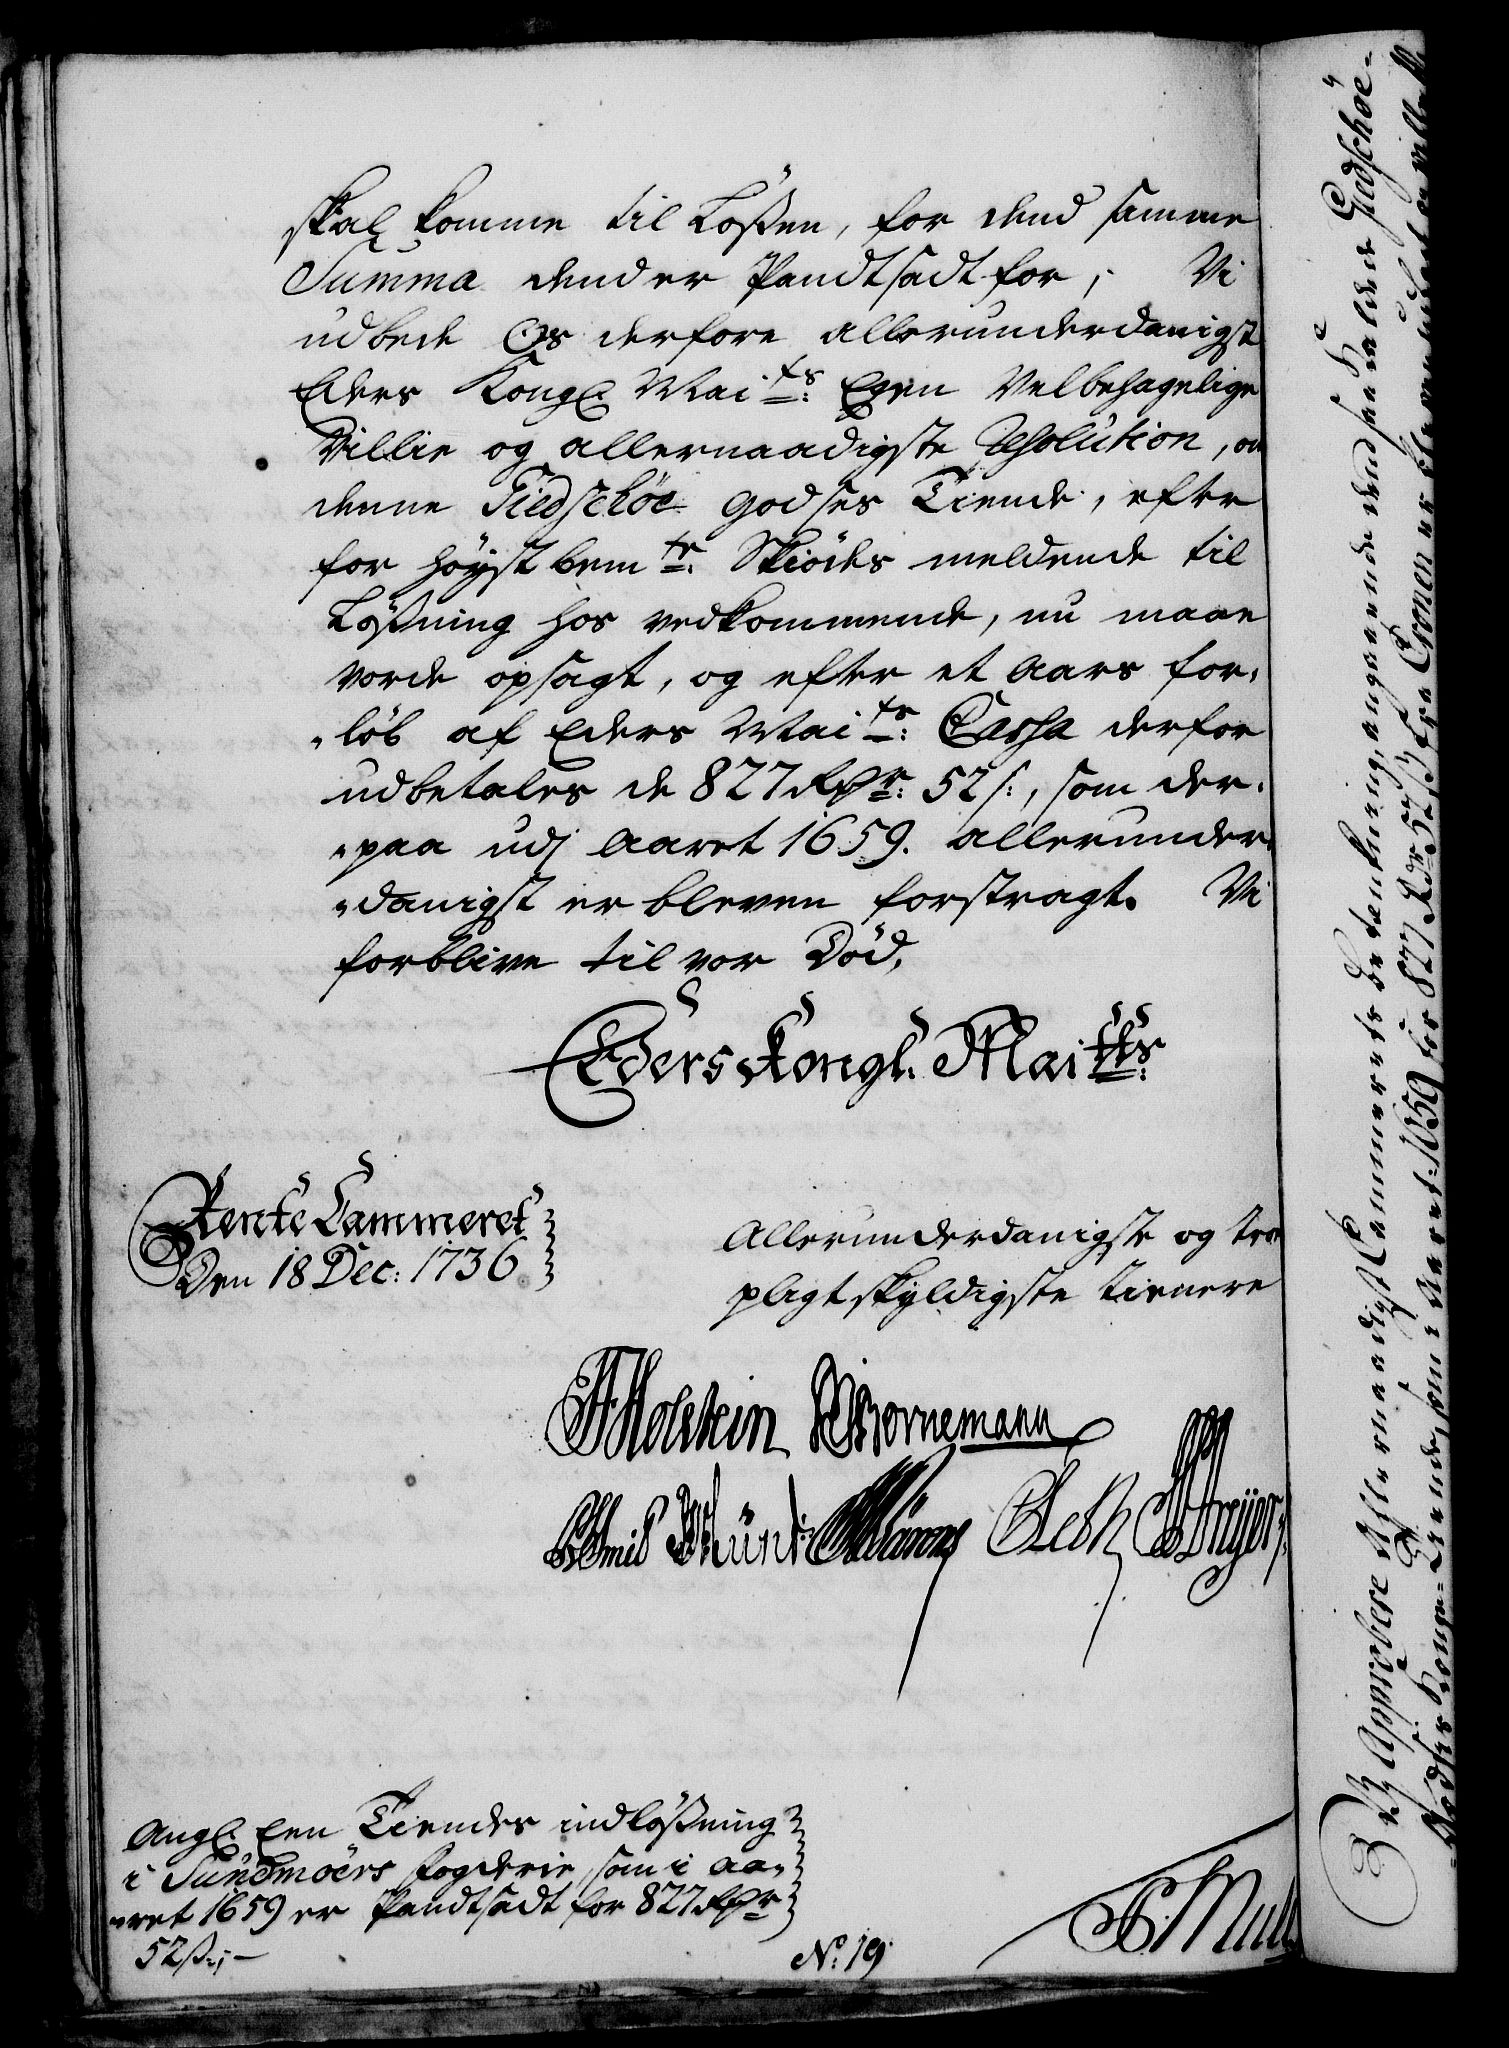 skal komme til Lößen, for dend samme
Summa dend er Pandtsadt for; Vi
udbede Os derfore allerunderdanigst
Eders Kongl. Mai ts: Egen Velbehagelige
Villie og allernaadigste Resolution, om
denne Giedschöe Godses Tiende, efter
for höyst bem te: Skiödes meldende til
Lößning hos vedkommende, nu maae
vorde opsagt, og efter et Aars for,
„löb af Eders Mai ts: Cassa derfor
udbetales de 827 Rdr: 52 s:, som der,
„paa udj Aaret 1659. allerunder,
„danigst er bleven forstragt. Vi
forblive til vor Död,
Eders Kongl. Mai tts:
Rente Cammeret
Den 18 Dec: 1736
Allerunderdanigste og troe
pligtskyldigste tienere
Holstein Bornemann
Münt
Angl. Een Tiendes indlößning
i Sundmöers fogderie, som i Aa,
„ret 1659 er Pandtsadt for 827 Rdr
52 ß:;
No: 19.
Approbere Allernaadigst Cammerets betenkning, angaaende dend saa kaldet Giedschöe-
Godses Konge-Tiende, som i Aaret 1659 for 827 Rdr 52 ß fra Cronen er